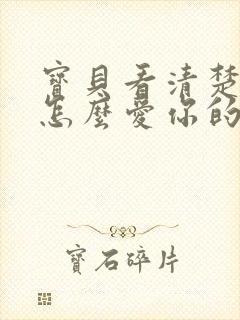 寶貝看清楚
怎麼愛你的
寶石碎片